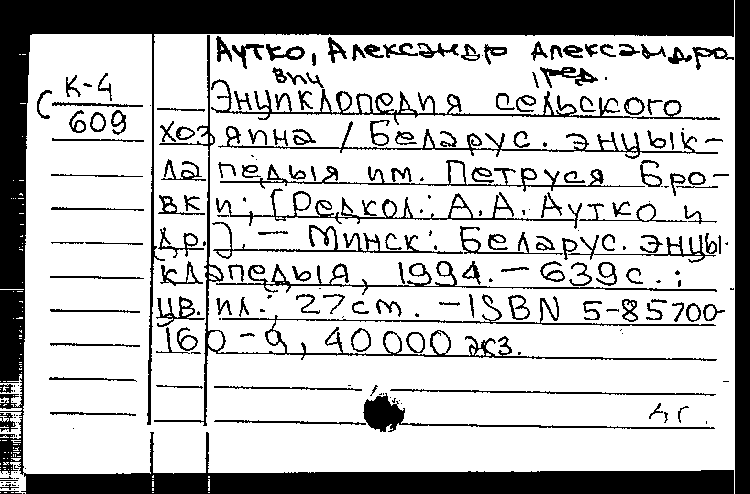 Аутко, Александр Александро-
вич, ред.
К-4
С 609
Энциклопедия сельского
хозяина / Беларус. энцык-
лапедыя им. Петруся Бро-
вки; [Редкол.: А.А. Аутко и
др.]. – Минск: Беларус. энцы-
клапедыя, 1994. – 639 с. :
цв. ил.; 27 cm. – ISBN 5-85700-
160-9, 40 000 экз.